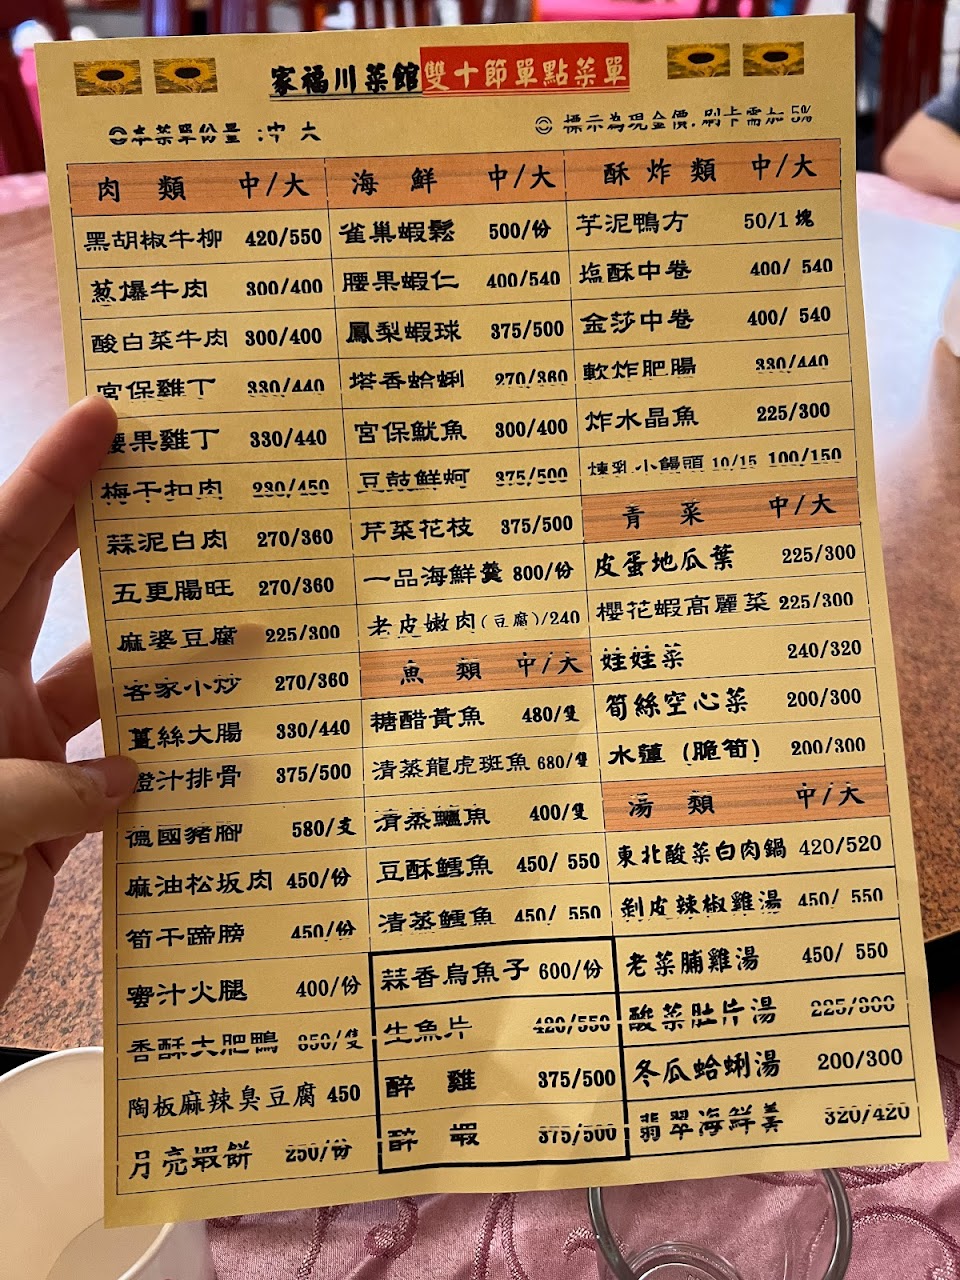 家福川菜館雙十節單點菜單
◎本菜單份量:中 大
◎ 標示為現金價.刷卡需加 5%
肉 類 中/大
黑胡椒牛柳 420/550
葱爆牛肉 300/400
酸白菜牛肉 300/400
宮保雞丁 330/440
腰果雞丁 330/440
梅干扣肉 230/450
蒜泥白肉 270/360
五更腸旺 270/360
麻婆豆腐 225/300
客家小炒 270/360
薑絲大腸 330/440
橙汁排骨 375/500
德國豬腳 580/支
麻油松坂肉 450/份
筍干蹄膀 450/份
蜜汁火腿 400/份
香酥大肥鴨 850/隻
陶板麻辣臭豆腐 450
月亮蝦餅 250/份
海 鮮 中/大
雀巢蝦鬆 500/份
腰果蝦仁 400/540
鳳梨蝦球 375/500
塔香蛤蜊 270/360
宮保魷魚 300/400
豆鼓鮮蚵 375/500
芹菜花枝 375/500
一品海鮮羹 800/份
老皮嫩肉(豆腐)/240
魚 類 中/大
糖醋黃魚 480/隻
清蒸龍虎斑魚 680/隻
清蒸鱸魚 400/隻
豆酥鱈魚 450/ 550
清蒸鱈魚 450/ 550
蒜香烏魚子 600/份
生魚片 420/550
醉 雞 375/500
醉 蝦 375/500
酥 炸 類 中/大
芋泥鴨方 50/1 塊
塩酥中卷 400/ 540
金莎中卷 400/ 540
軟炸肥腸 330/440
炸水晶魚 225/300
煉乳小饅頭 10/15 100/150
青 菜 中/大
皮蛋地瓜葉 225/300
櫻花蝦高麗菜 225/300
娃娃菜 240/320
筍絲空心菜 200/300
水蓮 (脆筍) 200/300
湯 類 中/大
東北酸菜白肉鍋 420/520
剝皮辣椒雞湯 450/ 550
老菜脯雞湯 450/ 550
酸菜肚片湯 225/300
冬瓜蛤蜊湯 200/300
翡翠海鮮羹 320/420